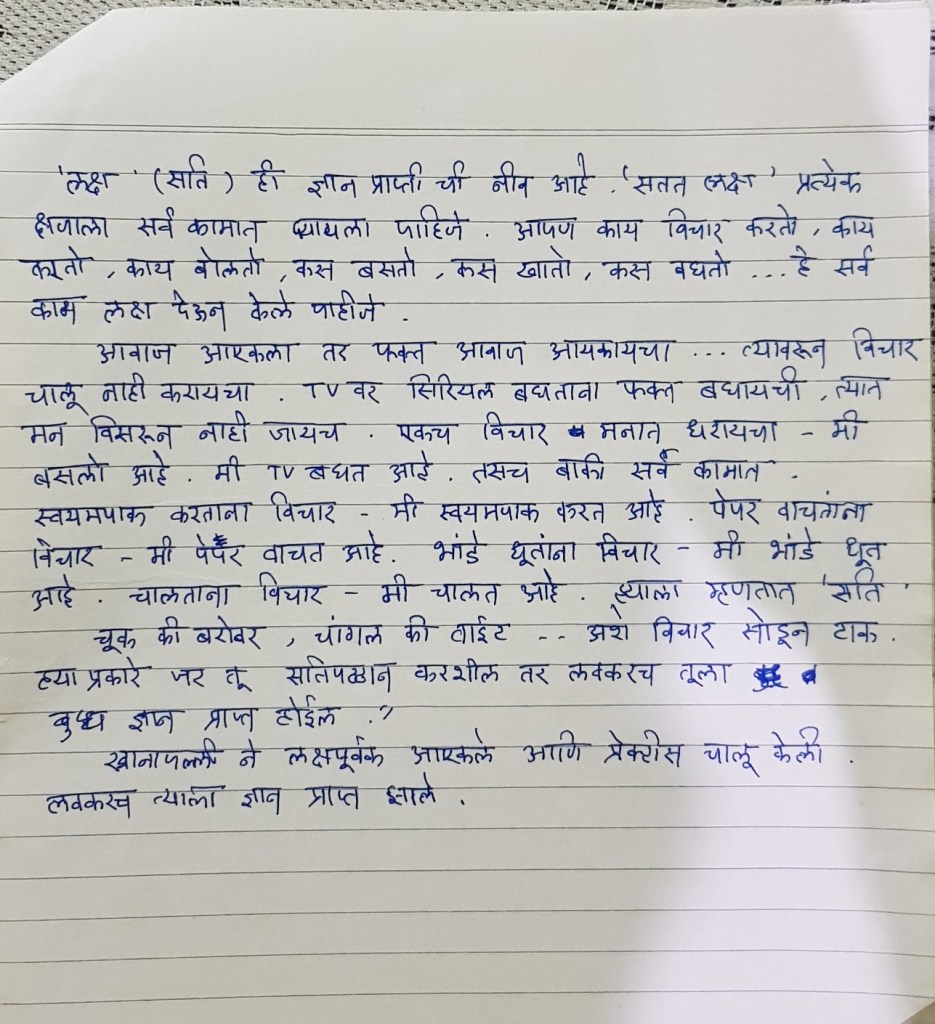 'लक्ष' (सति) ही ज्ञान प्राप्ती ची नीव आहे. 'सतत लक्ष' प्रत्येक
क्षणाला सर्व कामात द्यायला पाहिजे. आपण काय विचार करतो, काय
करतो, काय बोलतो, कस बसतो, कस खातो, कस बघतो ... हे सर्व
काम लक्ष देऊन केले पाहीजे.
आवाज आएकला तर फक्त आवाज आयकायचा ... त्यावरून विचार
चालू नाही करायचा. TV वर सिरियल बघताना फक्त बघायची, त्यात
मन विसरून नाही जायच. एकच विचार मनात धरायचा - मी
बसलो आहे. मी TV बघत आहे. तसच बाकी सर्व कामात.
स्वयमपाक करताना विचार - मी स्वयमपाक करत आहे. पेपर वाचतांना
विचार - मी पेपर वाचत आहे. भांडे धूतांना विचार - मी भांडे धूत
आहे. चालताना विचार - मी चालत आहे. ह्याला म्हणतात 'सति'
चूक की बरोबर, चांगल की वाईट -- अशे विचार सोडून टाक.
ह्या प्रकारे जर तू सतिपठ्ठान करशील तर लवकरच तूला
बुध्ध ज्ञान प्राप्त होईल."
खानापल्ली ने लक्षपूर्वक आएकले आणि प्रेक्टीस चालू केली.
लवकरच त्याला ज्ञान प्राप्त झाले.